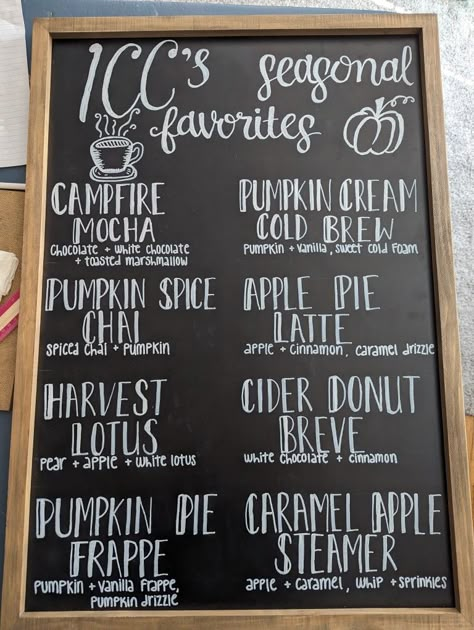 ICC's seasonal
favorites
CAMPFIRE
MOCHA
Chocolate + white chocolate
+ toasted marshmallow
PUMPKIN SPICE
CHAI
spiced chai + pumpkin
HARVEST
LOTUS
pear + apple + white lotus
PUMPKIN PIE
FRAPPE
pumpkin + vanilla frappe,
pumpkin drizzle
PUMPKIN CREAM
COLD BREW
pumpkin + vanilla, sweet cold foam
APPLE PIE
LATTE
apple + cinnamon, caramel drizzle
CIDER DONUT
BREVE
white chocolate + cinnamon
CARAMEL APPLE
STEAMER
apple + caramel, whip + sprinkles